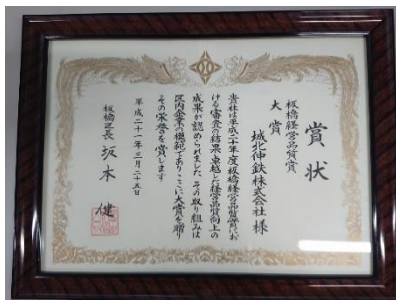 賞状
板橋経営品質賞
大賞
城北伸鉄株式会社 様
貴社は平成二十年度板橋経営品質賞にお
ける審査の結果卓越した経営品質向上の
成果が認められました その取り組みは
区内企業の模範でありここに大賞を贈り
その栄誉を賞します
平成二十一年三月二十五日
板橋区長 坂本 健